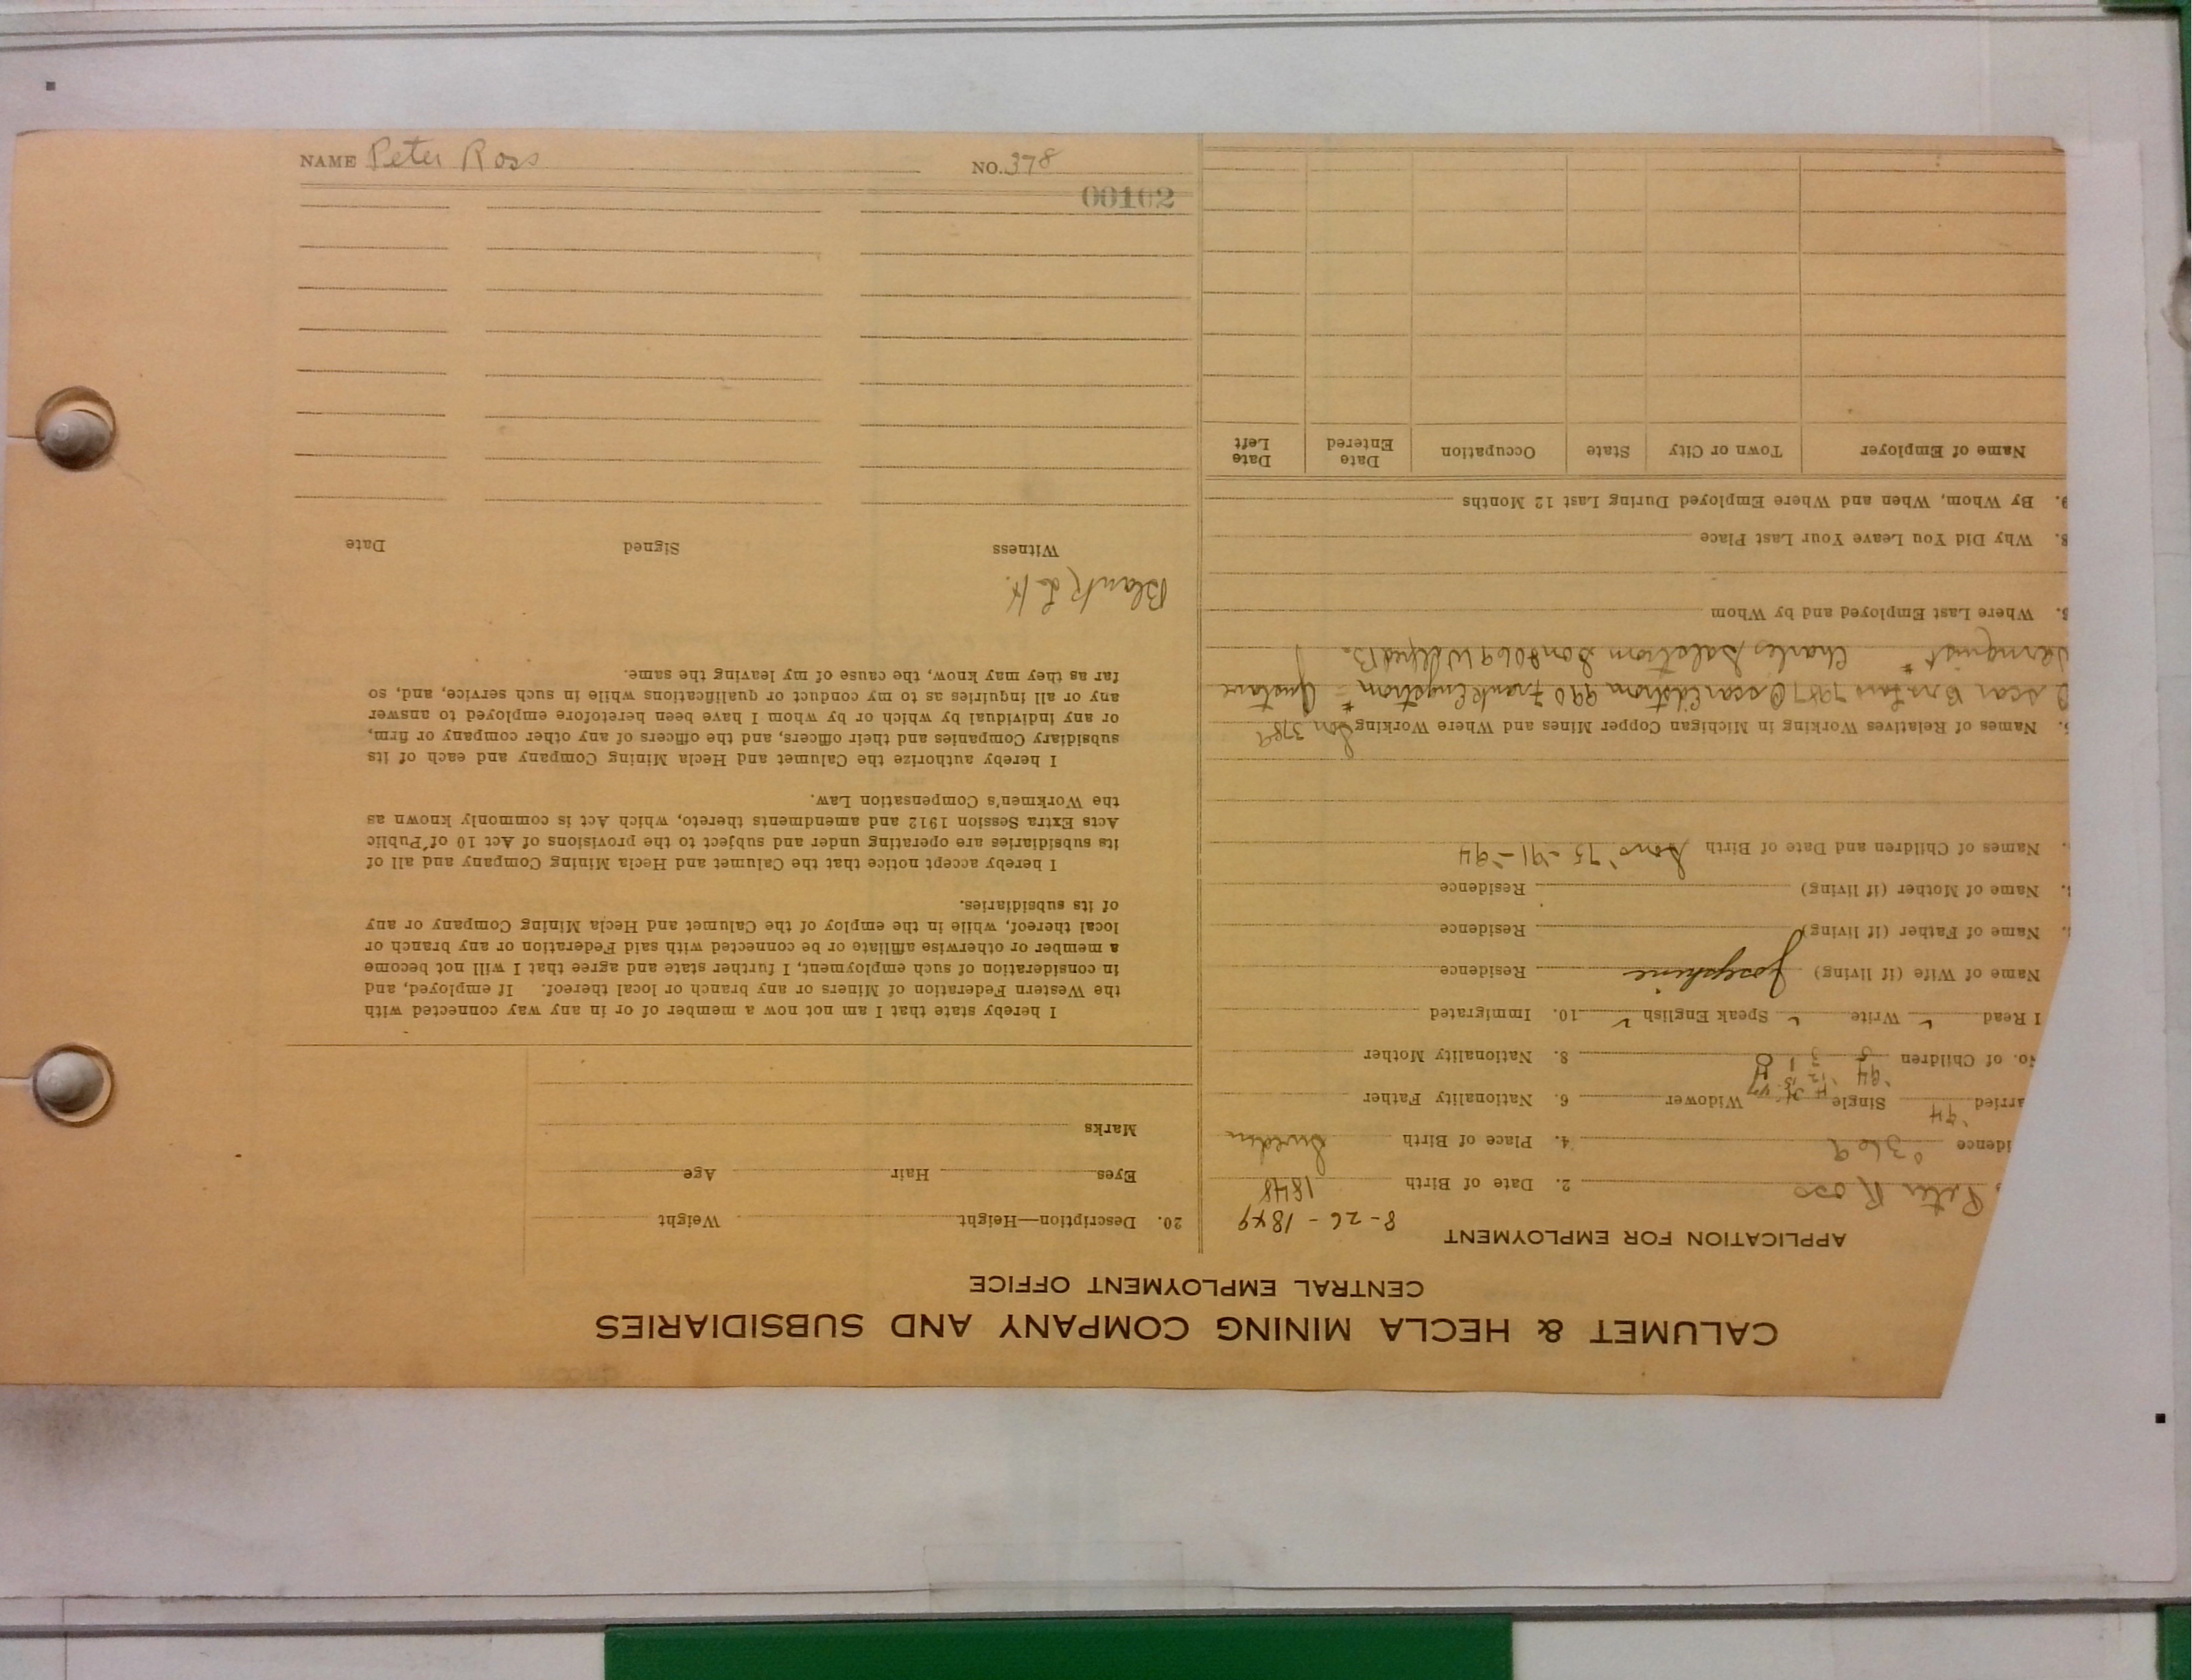 NAME Peter Ross NO. 378
00102
CALUMET & HECLA MINING COMPANY AND SUBSIDIARIES
CENTRAL EMPLOYMENT OFFICE
APPLICATION FOR EMPLOYMENT
8-26-1849
Peter Ross 2. Date of Birth 1848
idence 369 4. Place of Birth Sweden
arried '94 Single Widower 6. Nationality Father
'94
No. of Children 5 3 1 8. Nationality Mother
I Read ✓ Write ✓ Speak English ✓ 10. Immigrated
Name of Wife (if living) Josephine Residence
Name of Father (if living) Residence
Name of Mother (if living) Residence
Names of Children and Date of Birth Sons '75-'91-'94
Names of Relatives Working in Michigan Copper Mines and Where Working Son 3789
7987 Oscar Edstrom 990 Frank Engstrom Gustave
Charles Salstrom Son 8069 Wilfred B.
Where Last Employed and by Whom
8. Why Did You Leave Your Last Place
9. By Whom, When and Where Employed During Last 12 Months
Name of Employer Town or City State Occupation Date Entered Date Left
20. Description—Height Weight
Eyes Hair Age
Marks
I hereby state that I am not now a member of or in any way connected with
the Western Federation of Miners or any branch or local thereof. If employed, and
in consideration of such employment, I further state and agree that I will not become
a member or otherwise affiliate or be connected with said Federation or any branch or
local thereof, while in the employ of the Calumet and Hecla Mining Company or any
of its subsidiaries.
I hereby accept notice that the Calumet and Hecla Mining Company and all of
its subsidiaries are operating under and subject to the provisions of Act 10 of Public
Acts Extra Session 1912 and amendments thereto, which Act is commonly known as
the Workmen's Compensation Law.
I hereby authorize the Calumet and Hecla Mining Company and each of its
subsidiary Companies and their officers, and the officers of any other company or firm,
or any individual by which or by whom I have been heretofore employed to answer
any or all inquiries as to my conduct or qualifications while in such service, and, so
far as they may know, the cause of my leaving the same.
Blank
Witness Signed Date